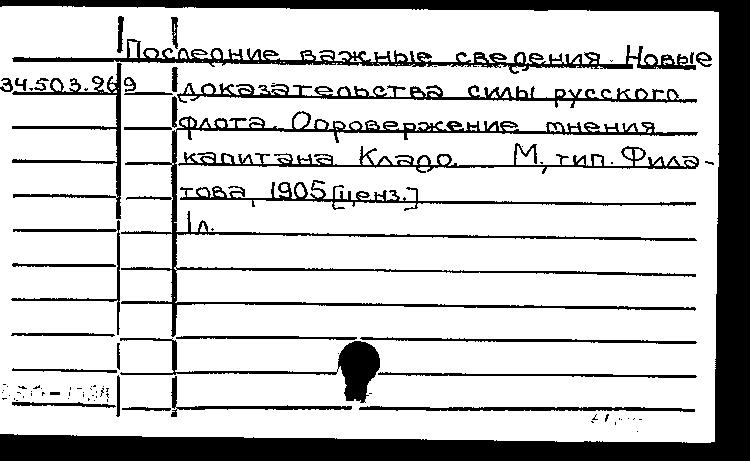 Последние важные сведения. Новые
34.503.269 доказательства силы русского
флота. Опровержение мнения
капитана Кладо. М., тип. Фила-
това, 1905 [ценз.]
1 л.